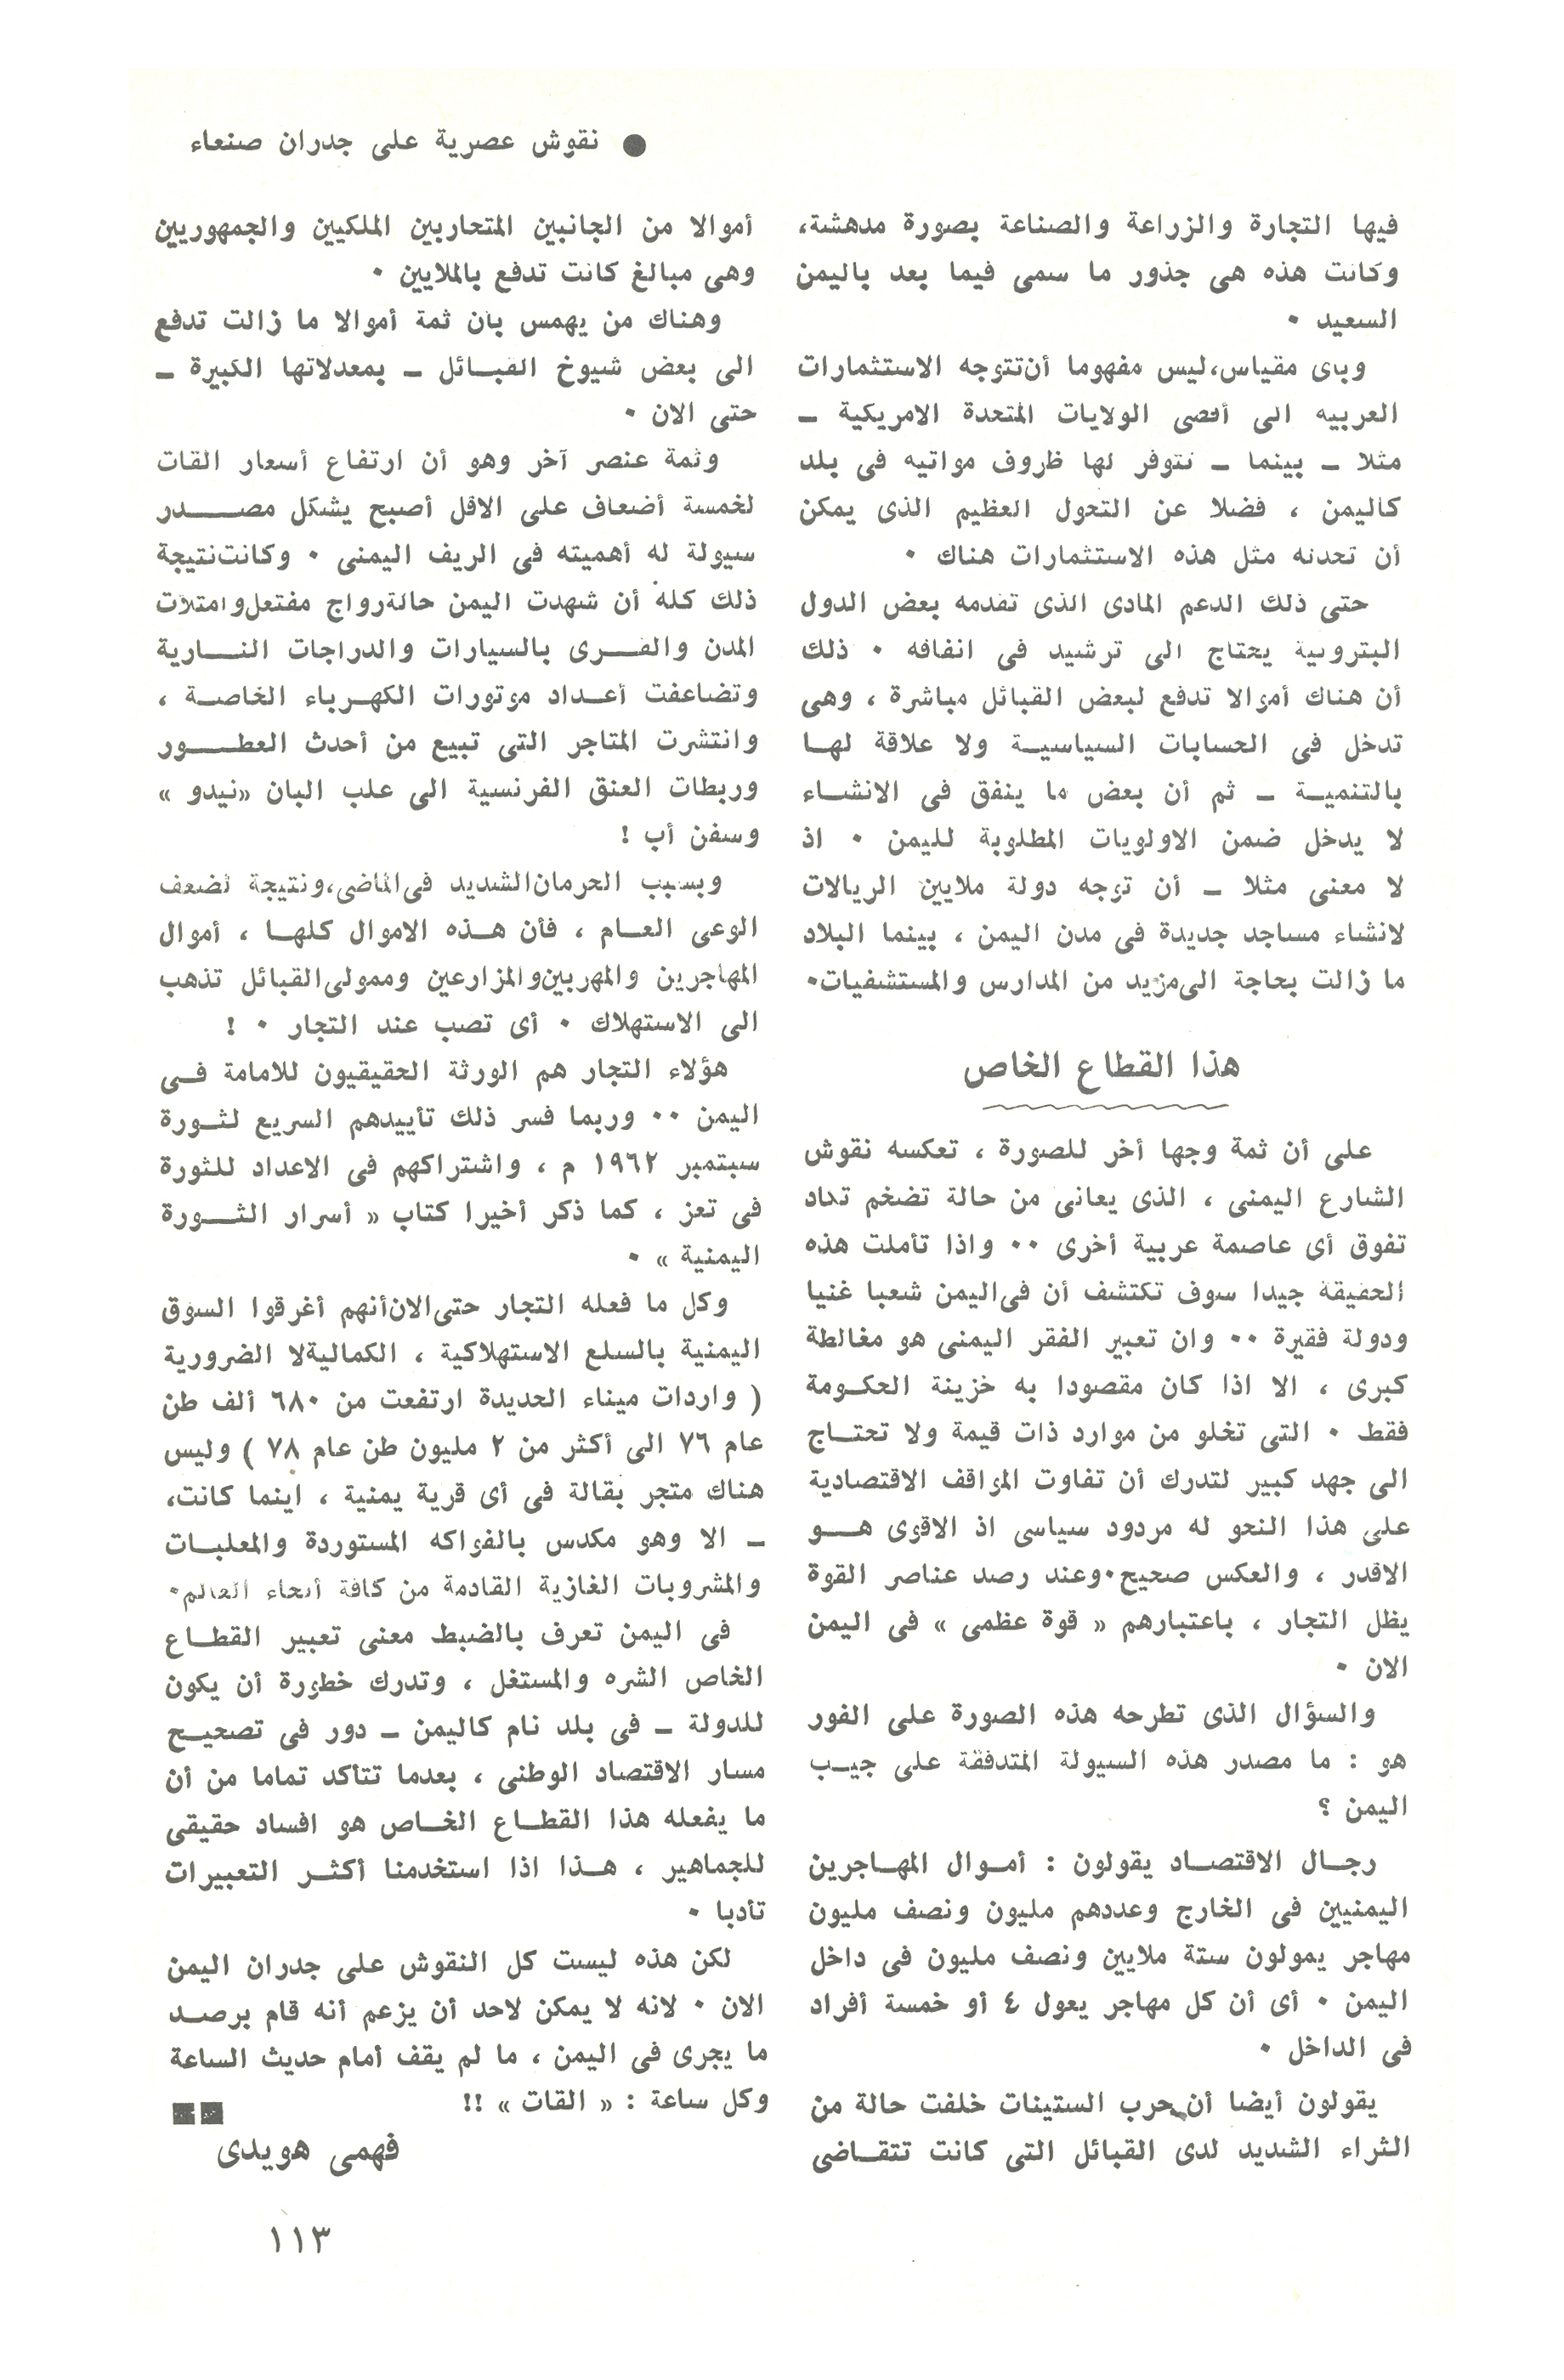 ● نقوش عصرية على جدران صنعاء
فيها التجارة والزراعة والصناعة بصورة مدهشة،
وكانت هذه هى جذور ما سمى فيما بعد باليمن
السعيد ٠
وباى مقياس،ليس مفهوما أن تتوجه الاستثمارات
العربيه الى أقصى الولايات المتحدة الامريكية –
مثلا – بينما – تتوفر لها ظروف مواتيه فى بلد
كاليمن ، فضلا عن التحول العظيم الذى يمكن
أن تحدثه مثل هذه الاستثمارات هناك ٠
حتى ذلك الدعم المادى الذى تقدمه بعض الدول
البترولية يحتاج الى ترشيد فى انفاقه ٠ ذلك
أن هناك أموالا تدفع لبعض القبائل مباشرة ، وهى
تدخل فى الحسابات السياسية ولا علاقة لها
بالتنمية – ثم أن بعض ما ينفق فى الانشاء
لا يدخل ضمن الاولويات المطلوبة لليمن ٠ اذ
لا معنى مثلا – أن توجه دولة ملايين الريالات
لانشاء مساجد جديدة فى مدن اليمن ، بينما البلاد
ما زالت بحاجة الى مزيد من المدارس والمستشفيات٠
هذا القطاع الخاص
على أن ثمة وجها أخر للصورة ، تعكسه نقوش
الشارع اليمنى ، الذى يعانى من حالة تضخم تكاد
تفوق أى عاصمة عربية أخرى ٠٠ واذا تأملت هذه
الحقيقة جيدا سوف تكتشف أن فى اليمن شعبا غنيا
ودولة فقيرة ٠٠ وان تعبير الفقر اليمنى هو مغالطة
كبرى ، الا اذا كان مقصودا به خزينة الحكومة
فقط ٠ التى تخلو من موارد ذات قيمة ولا تحتاج
الى جهد كبير لتدرك أن تفاوت المواقف الاقتصادية
على هذا النحو له مردود سياسى اذ الاقوى هو
الاقدر ، والعكس صحيح٠وعند رصد عناصر القوة
يظل التجار ، باعتبارهم « قوة عظمى » فى اليمن
الان ٠
والسؤال الذى تطرحه هذه الصورة على الفور
هو : ما مصدر هذه السيولة المتدفقة على جيب
اليمن ؟
رجال الاقتصاد يقولون : أموال المهاجرين
اليمنيين فى الخارج وعددهم مليون ونصف مليون
مهاجر يمولون ستة ملايين ونصف مليون فى داخل
اليمن ٠ أى أن كل مهاجر يعول ٤ أو خمسة أفراد
فى الداخل ٠
يقولون أيضا أن حرب الستينات خلفت حالة من
الثراء الشديد لدى القبائل التى كانت تتقاضى
أموالا من الجانبين المتحاربين الملكيين والجمهوريين
وهى مبالغ كانت تدفع بالملايين ٠
وهناك من يهمس بان ثمة أموالا ما زالت تدفع
الى بعض شيوخ القبائل – بمعدلاتها الكبيرة –
حتى الان ٠
وثمة عنصر آخر وهو أن ارتفاع أسعار القات
لخمسة أضعاف على الاقل أصبح يشكل مصدر
سيولة له أهميته فى الريف اليمنى ٠ وكانت نتيجة
ذلك كله أن شهدت اليمن حالة رواج مفتعل وامتلات
المدن والقرى بالسيارات والدراجات النارية
وتضاعفت أعداد موتورات الكهرباء الخاصة ،
وانتشرت المتاجر التى تبيع من أحدث العطور
وربطات العنق الفرنسية الى علب البان «نيدو »
وسفن أب !
وبسبب الحرمان الشديد فى الماضى،ونتيجة لضعف
الوعى العام ، فأن هذه الاموال كلها ، أموال
المهاجرين والمهربين والمزارعين وممولى القبائل تذهب
الى الاستهلاك ٠ أى تصب عند التجار ٠ !
هؤلاء التجار هم الورثة الحقيقيون للامامة فى
اليمن ٠٠ وربما فسر ذلك تأييدهم السريع لثورة
سبتمبر ١٩٦٢ م ، واشتراكهم فى الاعداد للثورة
فى تعز ، كما ذكر أخيرا كتاب « أسرار الثورة
اليمنية » ٠
وكل ما فعله التجار حتى الان أنهم أغرقوا السوق
اليمنية بالسلع الاستهلاكية ، الكمالية لا الضرورية
( واردات ميناء الحديدة ارتفعت من ٦٨٠ ألف طن
عام ٧٦ الى أكثر من ٢ مليون طن عام ٧٨ ) وليس
هناك متجر بقالة فى أى قرية يمنية ، اينما كانت،
– الا وهو مكدس بالفواكه المستوردة والمعلبات
والمشروبات الغازية القادمة من كافة أنحاء العالم٠
فى اليمن تعرف بالضبط معنى تعبير القطاع
الخاص الشره والمستغل ، وتدرك خطورة أن يكون
للدولة – فى بلد نام كاليمن – دور فى تصحيح
مسار الاقتصاد الوطنى ، بعدما تتأكد تماما من أن
ما يفعله هذا القطاع الخاص هو افساد حقيقى
للجماهير ، هذا اذا استخدمنا أكثر التعبيرات
تأدبا ٠
لكن هذه ليست كل النقوش على جدران اليمن
الان ٠ لانه لا يمكن لاحد أن يزعم أنه قام برصد
ما يجرى فى اليمن ، ما لم يقف أمام حديث الساعة
وكل ساعة : « القات » !!
فهمى هويدى
١١٣